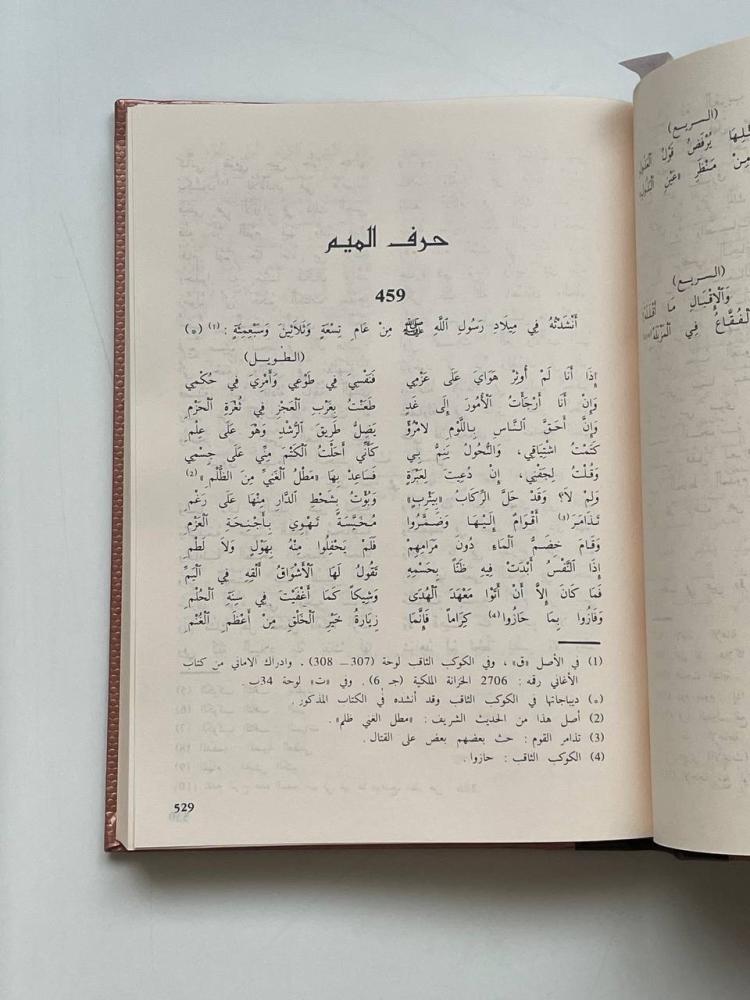 حرف الميم
459
أَنْشَدْتُهُ فِي مِيلَادِ رَسُولِ اللَّهِ ﷺ مِنْ عَامِ تِسْعَةٍ وَثَلَاثِينَ وَسَبْعِمِئَةٍ : (1) (*)
(الطَّوِيل)
إِذَا أَنَا لَمْ أُوثِرْ هَوَايَ عَلَى عَزْمِي فَنَفْسِيَ فِي طَوْعِي وَأَمْرِيَ فِي حُكْمِي
وَإِنْ أَنَا أَرْجَأْتُ الْأُمُورَ إِلَى غَدٍ طَعَنْتُ بِغَرْبِ الْعَجْزِ فِي ثُغْرَةِ الْحَزْمِ
وَإِنَّ أَحَقَّ النَّاسِ بِاللَّوْمِ لَامْرُؤٌ يَضِلُّ طَرِيقَ الرُّشْدِ وَهْوَ عَلَى عِلْمِ
كَتَمْتُ اشْتِيَاقِي، وَالنُّحُولُ يَنِمُّ بِي كَأَنِّي أَحَلْتُ الْكَتْمَ مِنِّي عَلَى جِسْمِي
وَقُلْتُ لِجَفْنِي، إِنْ دُعِيتَ لِعَبْرَةٍ فَسَاعِدْ بِهَا «مَطْلُ الْغَنِيِّ مِنَ الظُّلْمِ» (2)
وَلِمْ لَا؟ وَقَدْ حَلَّ الرِّكَابُ «بِيَثْرِبٍ» وَبُؤْتُ بِشَحْطِ الدَّارِ مِنْهَا عَلَى رَغْمِ
تَذَامَرَ (3) أَقْوَامٌ إِلَيْهَا وَضَمَّرُوا مُخَيَّسَةً تَهْوِي بِأَجْنِحَةِ الْعَزْمِ
وَقَامَ خِضَمُّ الْمَاءِ دُونَ مَرَامِهِمْ فَلَمْ يَحْفِلُوا مِنْهُ بِهَوْلٍ وَلَا لَطْمِ
إِذَا النَّفْسُ أَبْدَتْ فِيهِ ظَنّاً بِجَسْمِهِ تَقُولُ لَهَا الْأَشْوَاقُ أَلْقِهِ فِي الْيَمِّ
فَمَا كَانَ إِلَّا أَنْ أَتَوْا مَعْهَدَ الْهُدَى وَشِيكاً كَمَا أَغْفَيْتَ فِي سِنَةِ الْحُلْمِ
وَفَازُوا بِمَا حَازُوا (4) كِرَاماً فَإِنَّمَا زِيَارَةُ خَيْرِ الْخَلْقِ مِنْ أَعْظَمِ الْغُنْمِ
(1) في الأصل «ق» ، وفي الكوكب الثاقب لوحة (307 – 308) . وادراك الاماني من كتاب
الأغاني رقمه : 2706 الخزانة الملكية (جـ 6) . وفي «ت» لوحة 34ب .
(*) ديباجاتها في الكوكب الثاقب وقد أنشده في الكتاب المذكور .
(2) أصل هذا من الحديث الشريف : «مطل الغني ظلم» .
(3) تذامر القوم : حث بعضهم بعض على القتال .
(4) الكوكب الثاقب : حازوا .
529
(السريع)
يُرْفَضُ قَوْلُ
مِنْ مَنْظَرِ «عَيْنِ
(السريع)
وَالْإِقْبَالِ مَا
الْفُقَّاعُ فِي